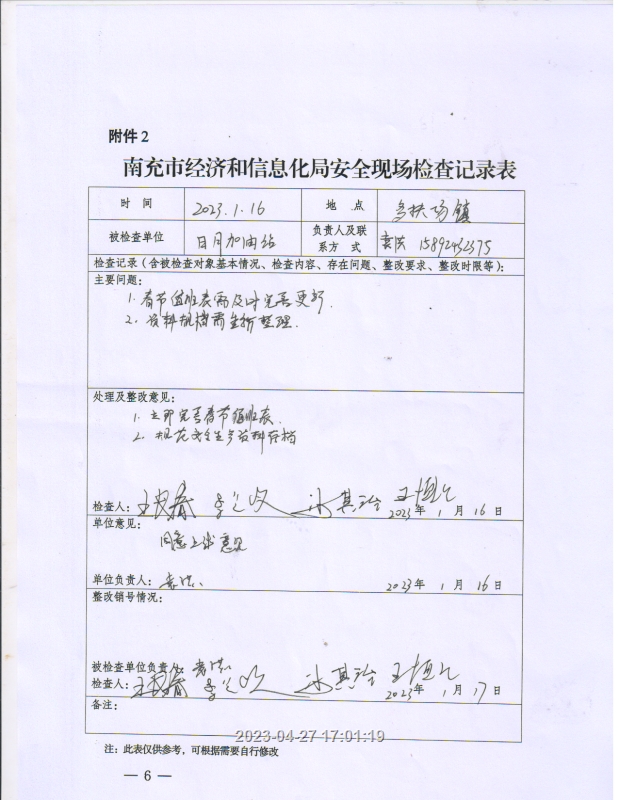 附件2
南充市经济和信息化局安全现场检查记录表
时 间 2023.1.16 地 点 多扶场镇
被检查单位 日月加油站 负责人及联系方式 袁浩 15892432375
检查记录（含被检查对象基本情况、检查内容、存在问题、整改要求、整改时限等）：
主要问题：
1. 春节值班表需及时完善更新.
2. 资料归档需重新整理.
处理及整改意见：
1. 立即完善春节值班表.
2. 规范安全生产资料存档
检查人： 2023年 1 月 16 日
单位意见：
同意上述意见
单位负责人：袁浩 2023年 1 月 16 日
整改销号情况：
被检查单位负责人：袁浩
检查人： 2023年 1 月 17 日
备注：
2023-04-27 17:01:19
注：此表仅供参考，可根据需要自行修改
— 6 —